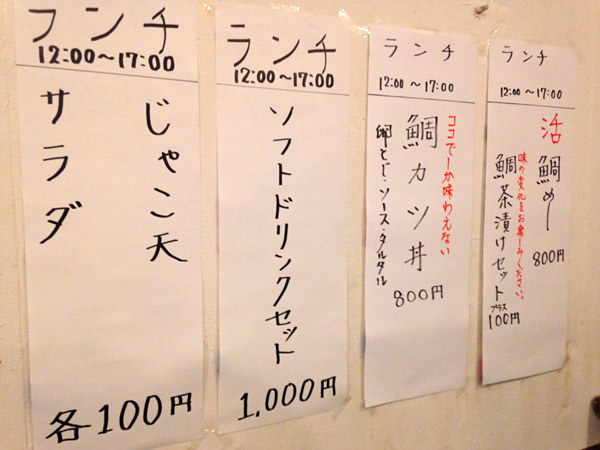 ランチ
12:00〜17:00
じゃこ天
サラダ
各100円
ランチ
12:00〜17:00
ソフトドリンクセット
1,000円
ランチ
12:00〜17:00
ココでしか味わえない
鯛カツ丼
卵とじ・ソース・タルタル
800円
ランチ
12:00〜17:00
活鯛めし
800円
味の変化をお楽しみください。
鯛茶漬けセット
プラス
100円